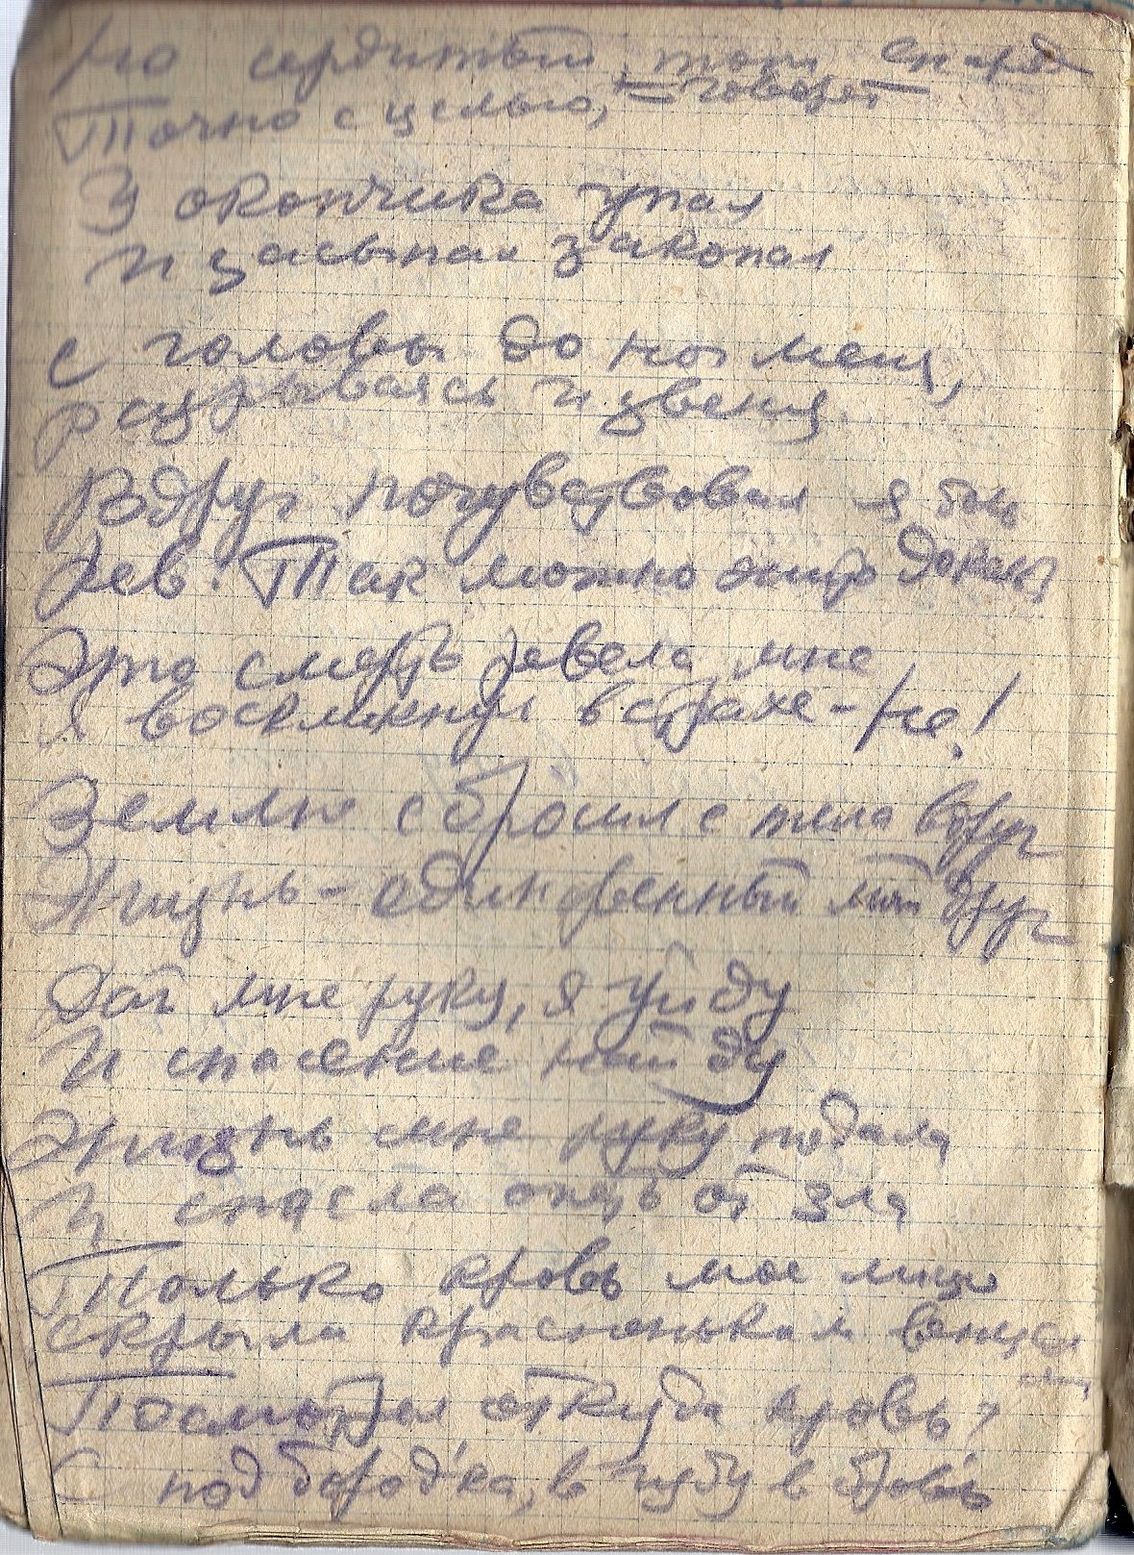 Но сердитый тот снаряд
Точно с целью, – говорят
У окопчика упал
И засыпал закопал
С головы до ног меня,
разрываясь и звеня
Вдруг почувствовал я
рев. Так можно
Это смерть ревела мне
Я воскликнул в страхе – Не!
Землю сбросил с тела вдруг
Жизнь – единственный мой друг
Дай мне руку, я уйду
И спасение найду
Жизнь мне руку подала
И спасла опять от зла
Только кровь мое лицо
скрыла красненьким венцом
Посмотрел откуда кровь?
С подбородка, в губу в бровь